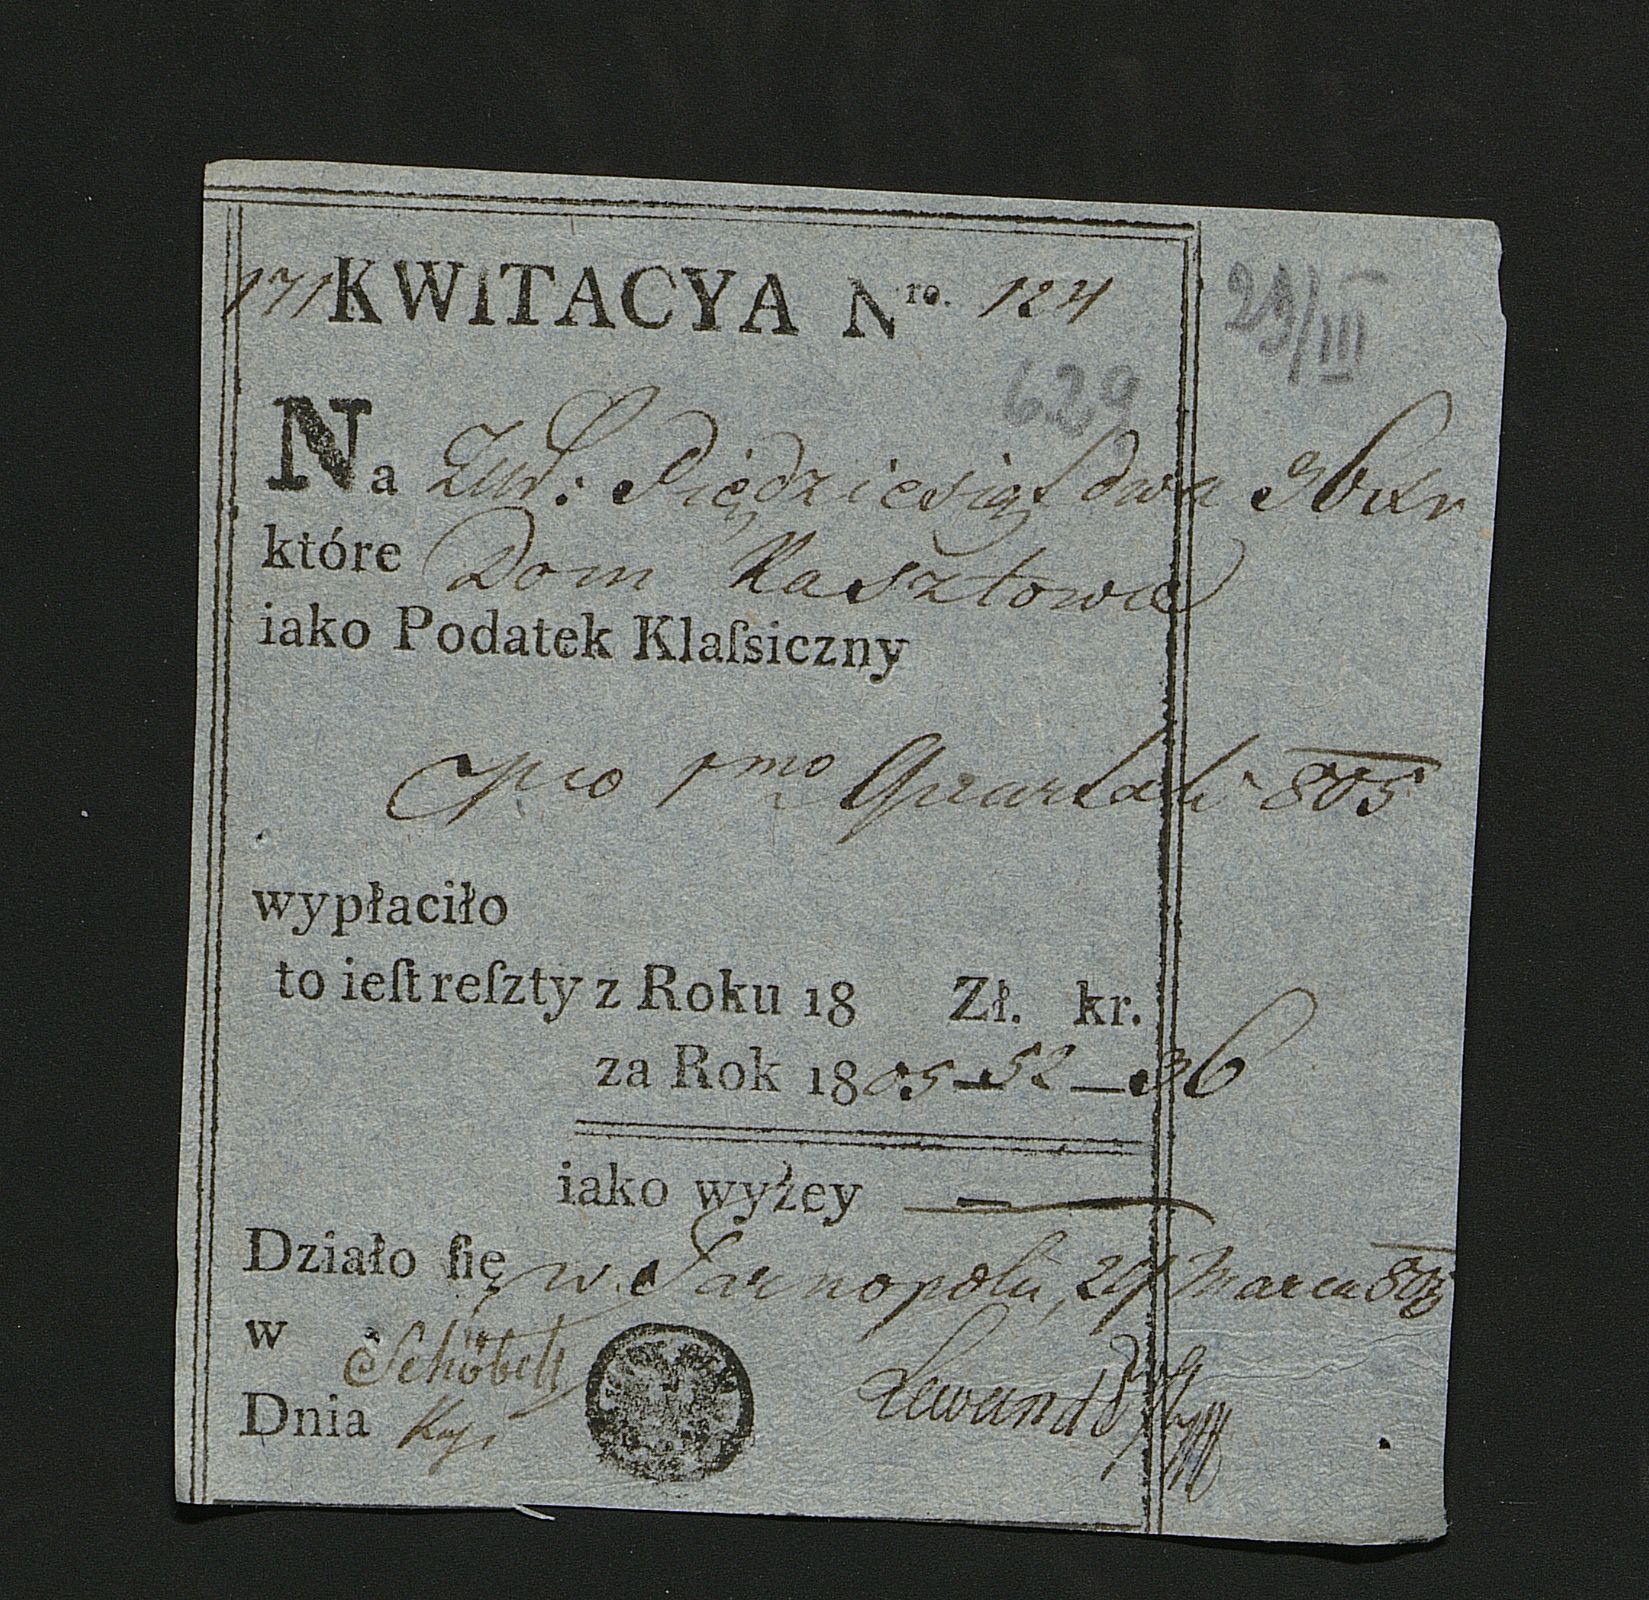 171 KWITACYA Nro. 124
29/III
629
Na Złr: Piędziesiąt dwa 36 xr
które Dom Kasztowa
iako Podatek Klaſsiczny
pro 1mo Quartali 805
wypłaciło
to ieſt reſzty z Roku 18 Zł. kr.
za Rok 1805 — 52 — 36
iako wyżey —
Działo ſię w Tarnopolu, 29 Marca 805
w Schöbelt
Dnia